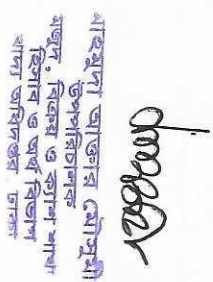 মাহমুদা আক্তার মৌসুমী
উপপরিচালক
মজুদ, বিক্রয় ও ক্যাশ শাখা
হিসাব ও অর্থ বিভাগ
খাদ্য অধিদপ্তর ঢাকা